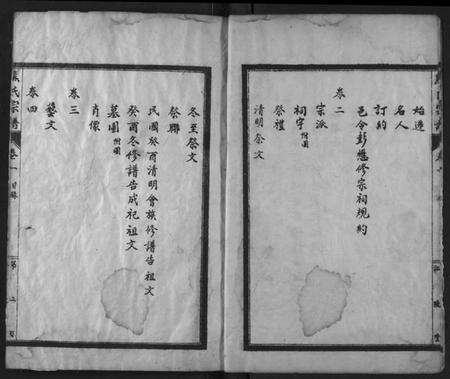 始遷
名人
訂約
邑令彭懋修宗祠規約
卷二
宗派
祠宇附圖
祭禮
清明祭文
冬至祭文
祭聯
民國癸酉清明會族修譜告祖文
癸酉冬修譜告成祀祖文
墓圖附圖
肖像
卷三
藝文
卷四
氏宗譜
卷一 目錄